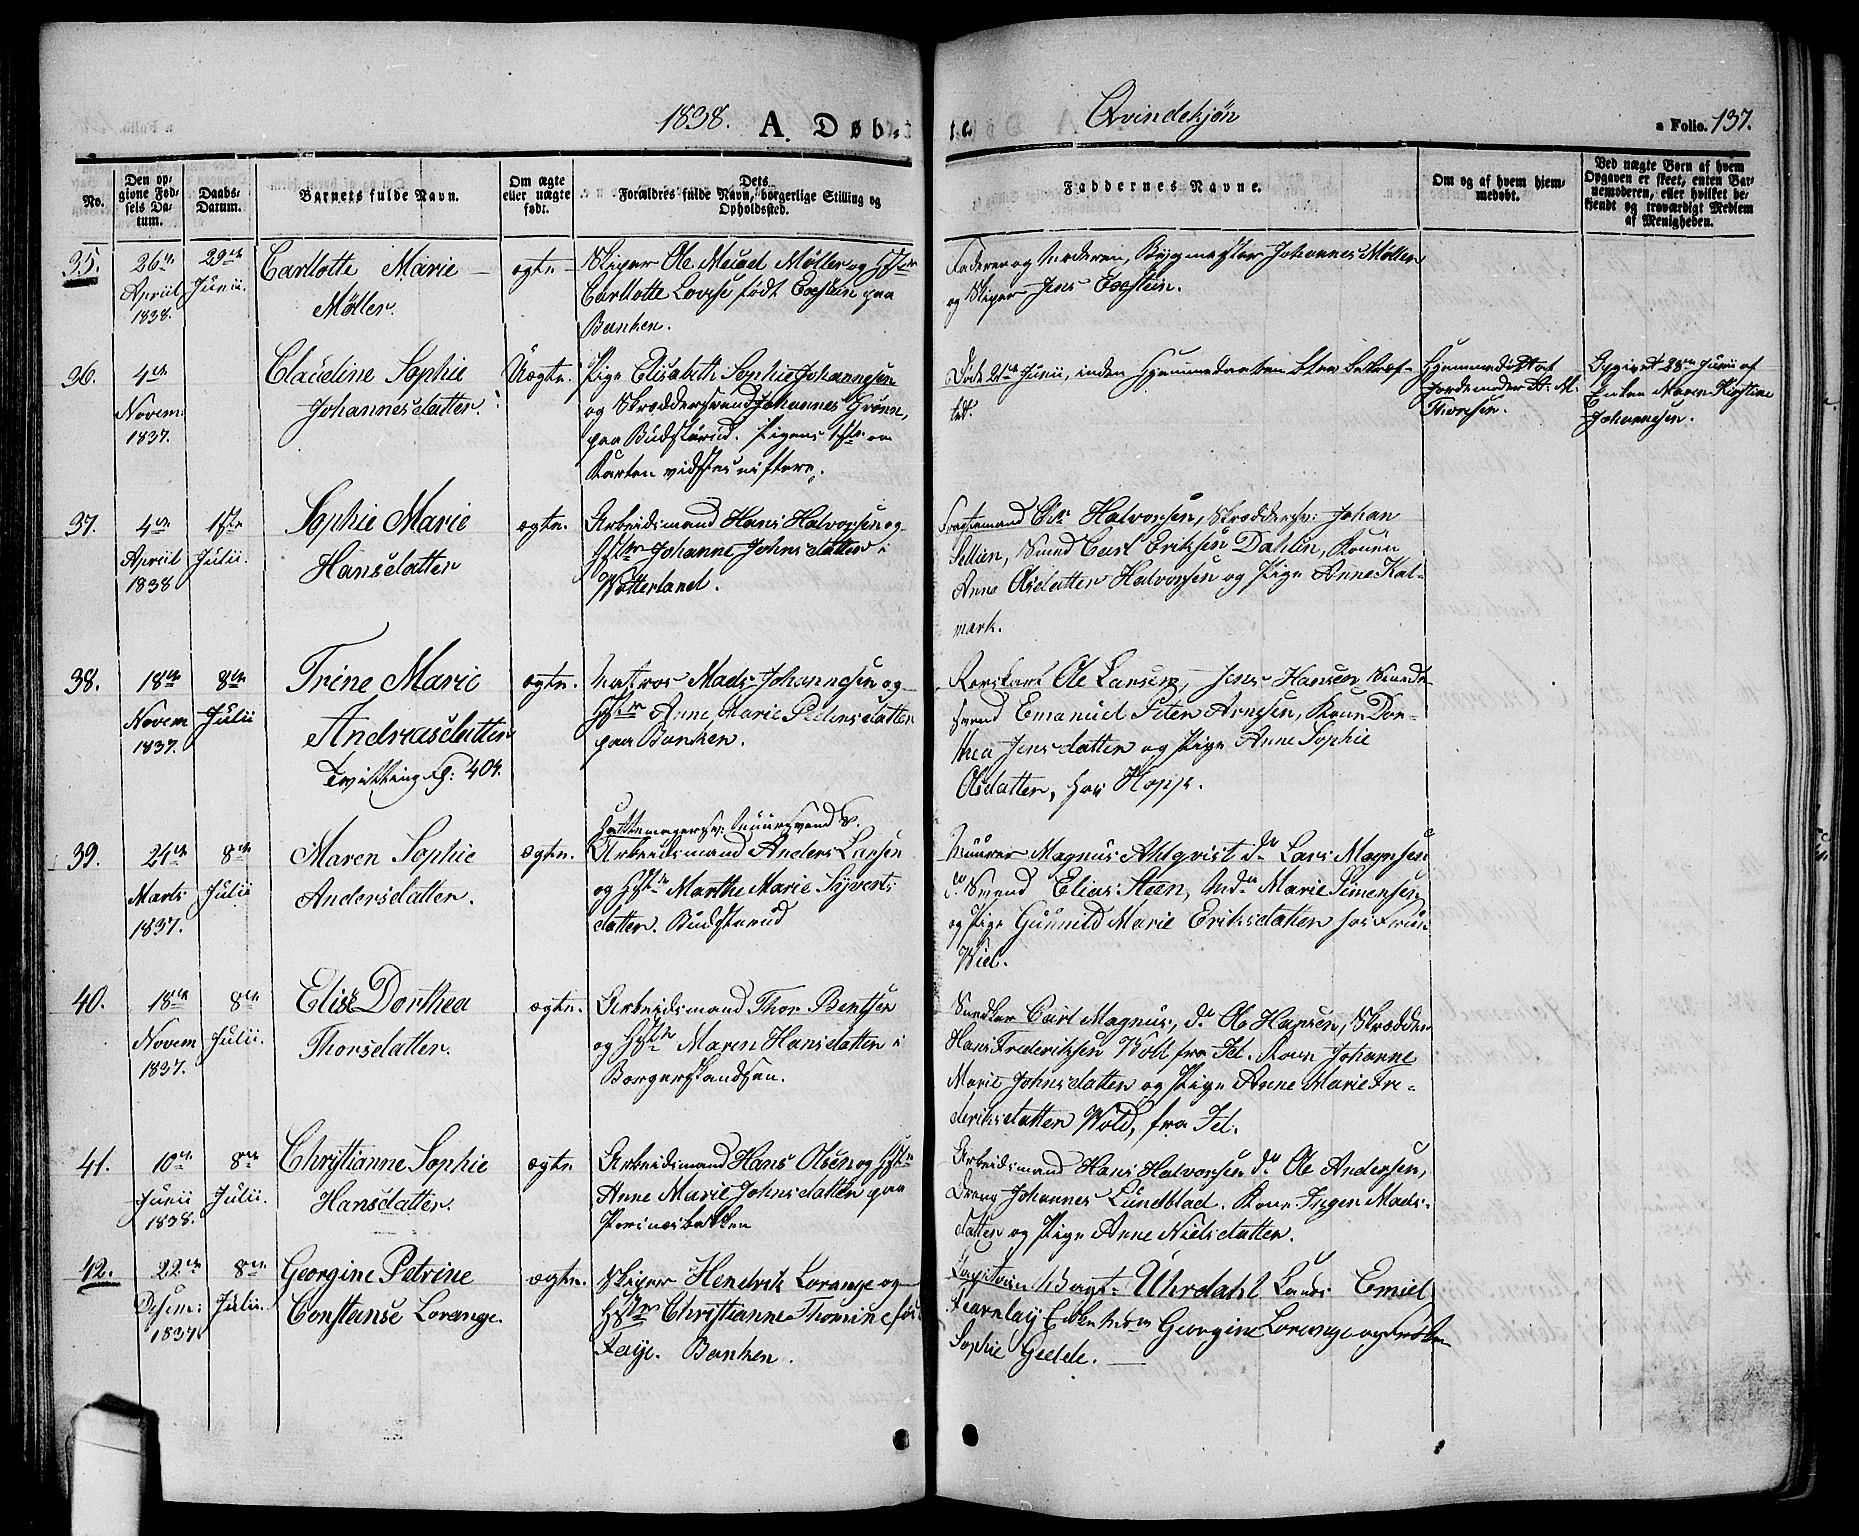 1838. A. Døbte. Qvindekjøn a Folio. 137.
No.
Den opgivne Fødsels Datum.
Daabs-Datum.
Barnets fulde Navn.
Om ægte eller uægte født.
Dets Forældres fulde Navn, borgerlige Stilling og Opholdssted.
Faddernes Navne.
Om og af hvem hjemmedøbt.
Ved uægte Børn af hvem Opgaven er skeet, enten Barnemoderen, eller hvilket bekjendt og troværdigt Medlem af Menigheden.
35.
26de April 1838.
29de Junii.
Carllotte Marie
Møller.
ægte
Skiper Ole Møller og Hstr
Carllotte Lovise født Exstein paa
Banken.
Faderen og Moderen, Bygmester Johannes Møller
og Skiper Jens Exstein.
36.
4de Novem 1837.
Claudine Sophie
Johannesdatter.
Uægte.
Pige Elisabeth Sophie Johannesen
og Skræddersvend Johannes Grønn,
paa Budstørud. Pigens 1ste om
Karlen vidstes ei flere.
Døde 21de Junii, inden Hjemmedaaben blev bekræf-
tet.
Hjemmedøbt af
Jordemoder
Thoresen.
Opgivet 28de Junii af
Enken Maren Kirstine
Johannesen.
37.
4de April 1838
1ste Julii.
Sophie Marie
Hansdatter
ægte.
Arbeidsmand Hans Halvorsen og
Hstr Johanne Johnsdatter i
Watterland.
Halvorsen, Skræddersv: Johan
Sellien, Smed Carl Eriksen Dahlin, Konen
Anne Olsdatter Halvorsen og Pige Anne Kal-
mark.
38.
18de Novem 1837.
8de Julii
Trine Marie
Andreasdatter
Tvilling
ægte.
Matros Mads Johannesen og
Hstr Anne Marie Pedersdatter
paa Banken.
Ole Larsen, Jens Hansen Smed-
svend Emanuel Peter Arnesen, Kone Dor-
thea Jensdatter og Pige Anne Sophie
Olsdatter, hos Hoppe.
39.
24de Marts 1837.
8de Julii
Maren Sophie
Andersdatter.
ægte.
Hattemagersv: Muursvend
Arbeidsmand Anders Larsen
og Hstr Marthe Marie Syverts
datter. Budstørud
Muurer Magnus Ahlqvist do Lars Magnsen
Smed Elias Steen, Marie Simensen
og Pige Gunnild Marie Eriksdatter hos Fru
Wiel.
40.
18de Novem 1837.
8de Julii.
Elise Dorthea
Thorsdatter.
ægte.
Arbeidsmand Thor Bentsen
og Hstr Maren Hansdatter i
Borgerskandsen.
Snedker Carl Magnus, do Ole Hansen, Skrædder
Hans Frederiksen Wold fra Id. Kone Johanne
Marie Johnsdatter og Pige Anne Marie Fre-
deriksdatter Wold, fra Id.
41.
10de Junii 1838.
8de Julii.
Christianne Sophie
Hansdatter.
ægte
Arbeidsmand Hans Olsen og Hstr
Anne Marie Johnsdatter paa
Perinesbakken
Arbeidsmand Hans Halvorsen do Ole Andersen,
Dreng Johannes Lundblad. Kone Inger Mads-
datter og Pige Anne Nielsdatter.
42.
22de Desem: 1837
8de Julii.
Georgine Petrine
Constanse Lorange.
ægte.
Skiper Hendrik Lorange og
Hstr Christianne Thomine
Faye. Banken.
Capitain Vagt- Uhrdahl Emiel
Fearnlay Enke Georgine Lorange og Frøken
Sophie Gedde.